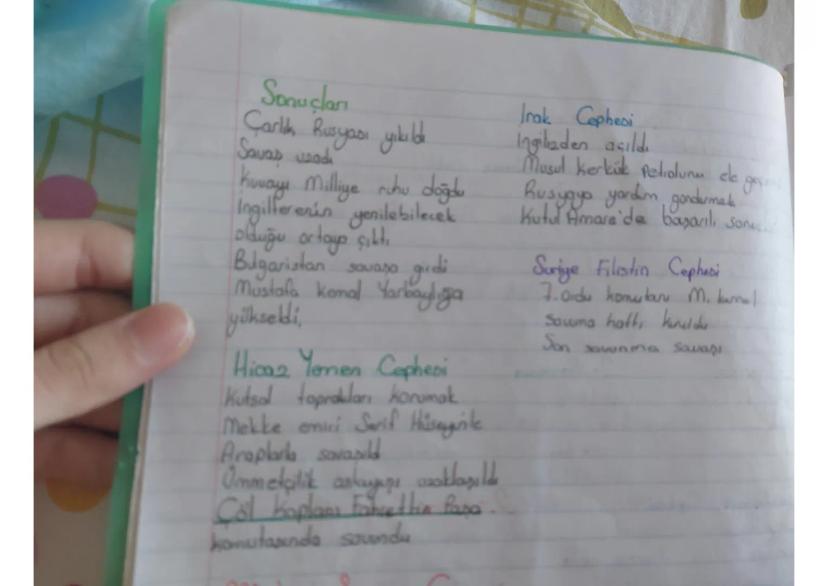 Sonuçları
Çarlık Rusyası yıkıldı
Savaş uzadı
Kuvayı Milliye ruhu doğdu
İngilterenin yenilebilecek
olduğu ortaya çıktı
Bulgaristan savaşa girdi
Mustafa Kemal Yarbaylığa
yükseldi,
Hicaz Yemen Cephesi
Kutsal toprakları korumak
Mekke emiri Şerif Hüseyin'le
Araplarla savaşıldı
Ümmetçilik anlayışı uzaklaşıldı
Çöl Kaplanı Fahrettin Paşa.
komutasında savundu
Irak Cephesi
açıldı
Musul Kerkük Petrolunu ele
Rusyaya yardım göndermek
Kutul Amare'de başarılı
Suriye Filistin Cephesi
7. ordu komutanı M. kemal
hattı kuruldu
Son savunma savaşı